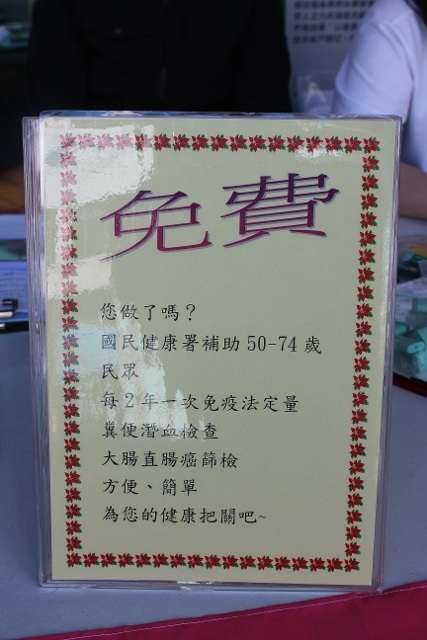 免費
您做了嗎？
國民健康署補助50-74歲
民眾
每2年一次免疫法定量
糞便潛血檢查
大腸直腸癌篩檢
方便、簡單
為您的健康把關吧~